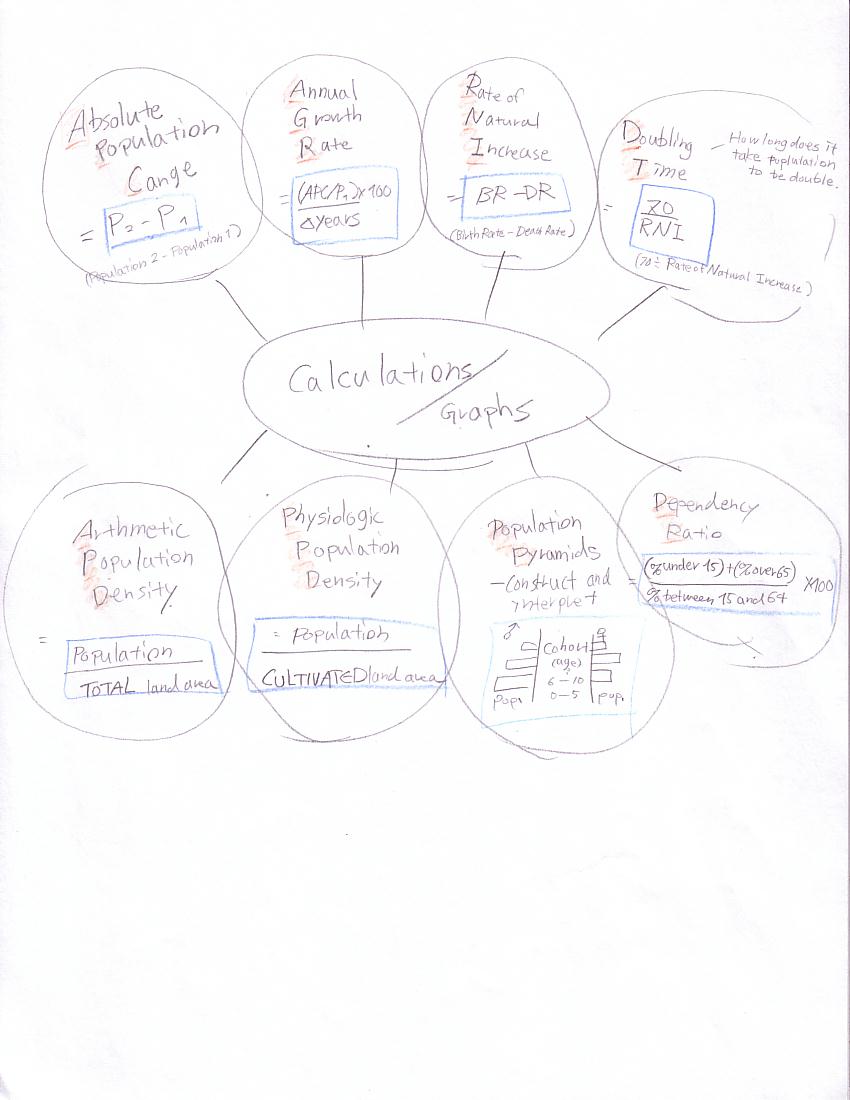 Absolute
Population
Cange
= P₂ - P₁
(Population 2 - Population 1)
Annual
Growth
Rate
= (APC/P₁) x 100
Δ years
Rate of
Natural
Increase
= BR - DR
(Birth Rate - Death Rate)
Doubling
Time
— How long does it
take poplulation
to be double.
= 70
RNI
(70 ÷ Rate of Natural Increase)
Calculations/
Graphs
Arthmetic
Population
Density
= Population
TOTAL land area
Physiologic
Population
Density
= Population
CULTIVATED land area
Population
Pyramids
- Construct and
interpret
♂ ♀
Cohort
(age)
6 - 10
0 - 5
Pop. pup.
Dependency
Ratio
= (% under 15) + (% over 65) X100
% between 15 and 64